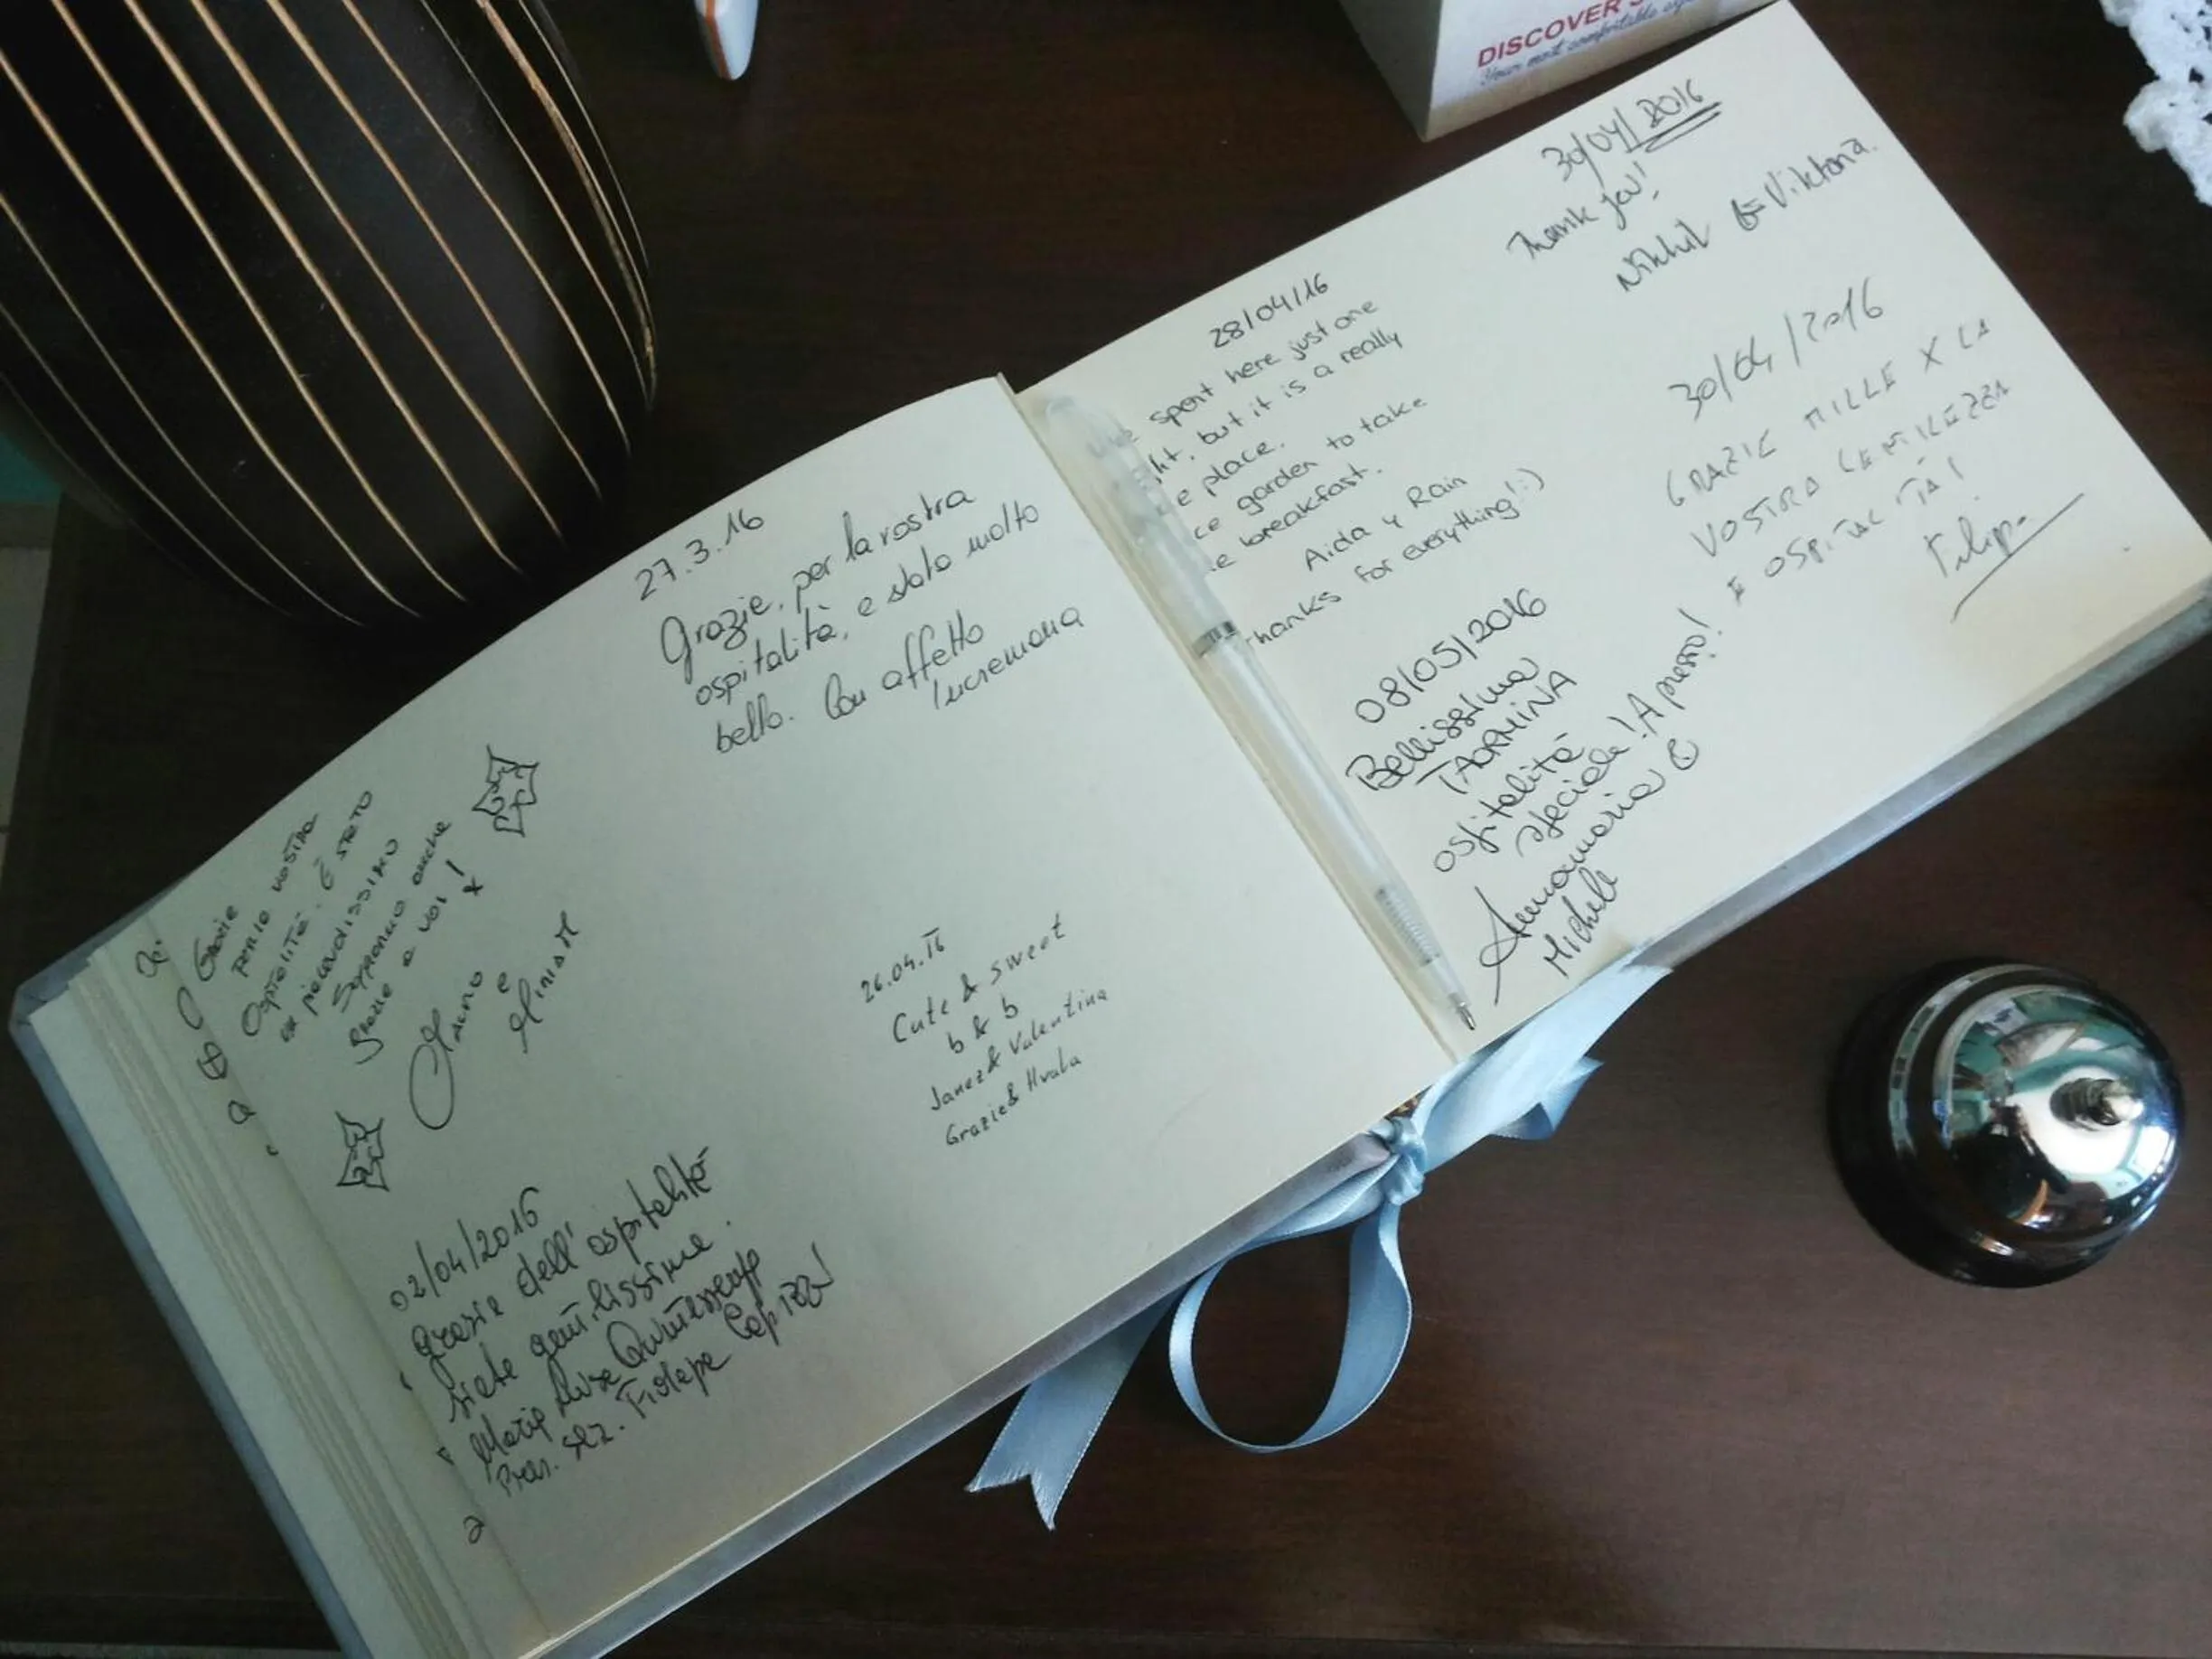 DISCOVER
Your most comfortable
27.3.16
Grazie, per la vostra
ospitalità, e stato molto
bello. Con affetto
Grazie
per la vostra
Ospitalità. È stato
un piacevolissimo
Soggiorno anche
Grazie a voi!
x
e
26.04.16
Cute & sweet
b & b
Janez & Valentina
Grazie & Hvala
02/04/2016
grazie dell'ospitalità
siete gentilissime.
Maria Luisa
28/04/16
We spent here just one
ht, but it is a really
e place.
ce garden to take
e breakfast.
Aida y Rain
hanks for everything! :)
08/05/2016
Bellissima
TAORMINA
ospitalità
speciale! A presto!
Annamaria
Michele
30/04/2016
Thank you!
Nikhil & Viktoria.
30/04/2016
GRAZIE MILLE X LA
VOSTRA GENTILEZZA
E OSPITALITÀ!